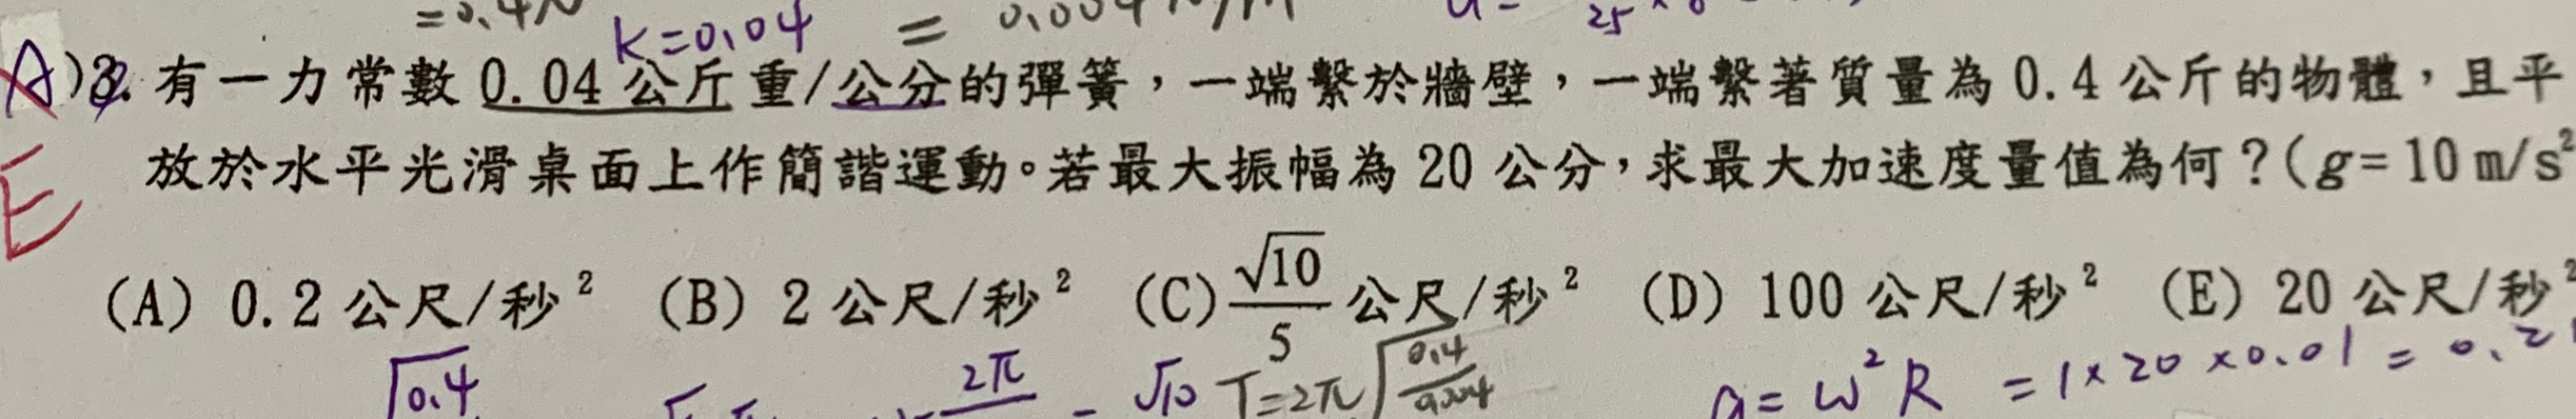 =0.4N
K=0.04 = 0.004 N/m
A)3. 有一力常數 0.04 公斤重/公分的彈簧，一端繫於牆壁，一端繫著質量為 0.4 公斤的物體，且平
E 放於水平光滑桌面上作簡諧運動。若最大振幅為 20 公分，求最大加速度量值為何？(g=10 m/s²
(A) 0.2 公尺/秒² (B) 2 公尺/秒² (C) √10/5 公尺/秒² (D) 100 公尺/秒² (E) 20 公尺/秒²
√0.4 2π √10 T=2π√0.4/0.004 a=ω²R =1×20×0.01=0.2